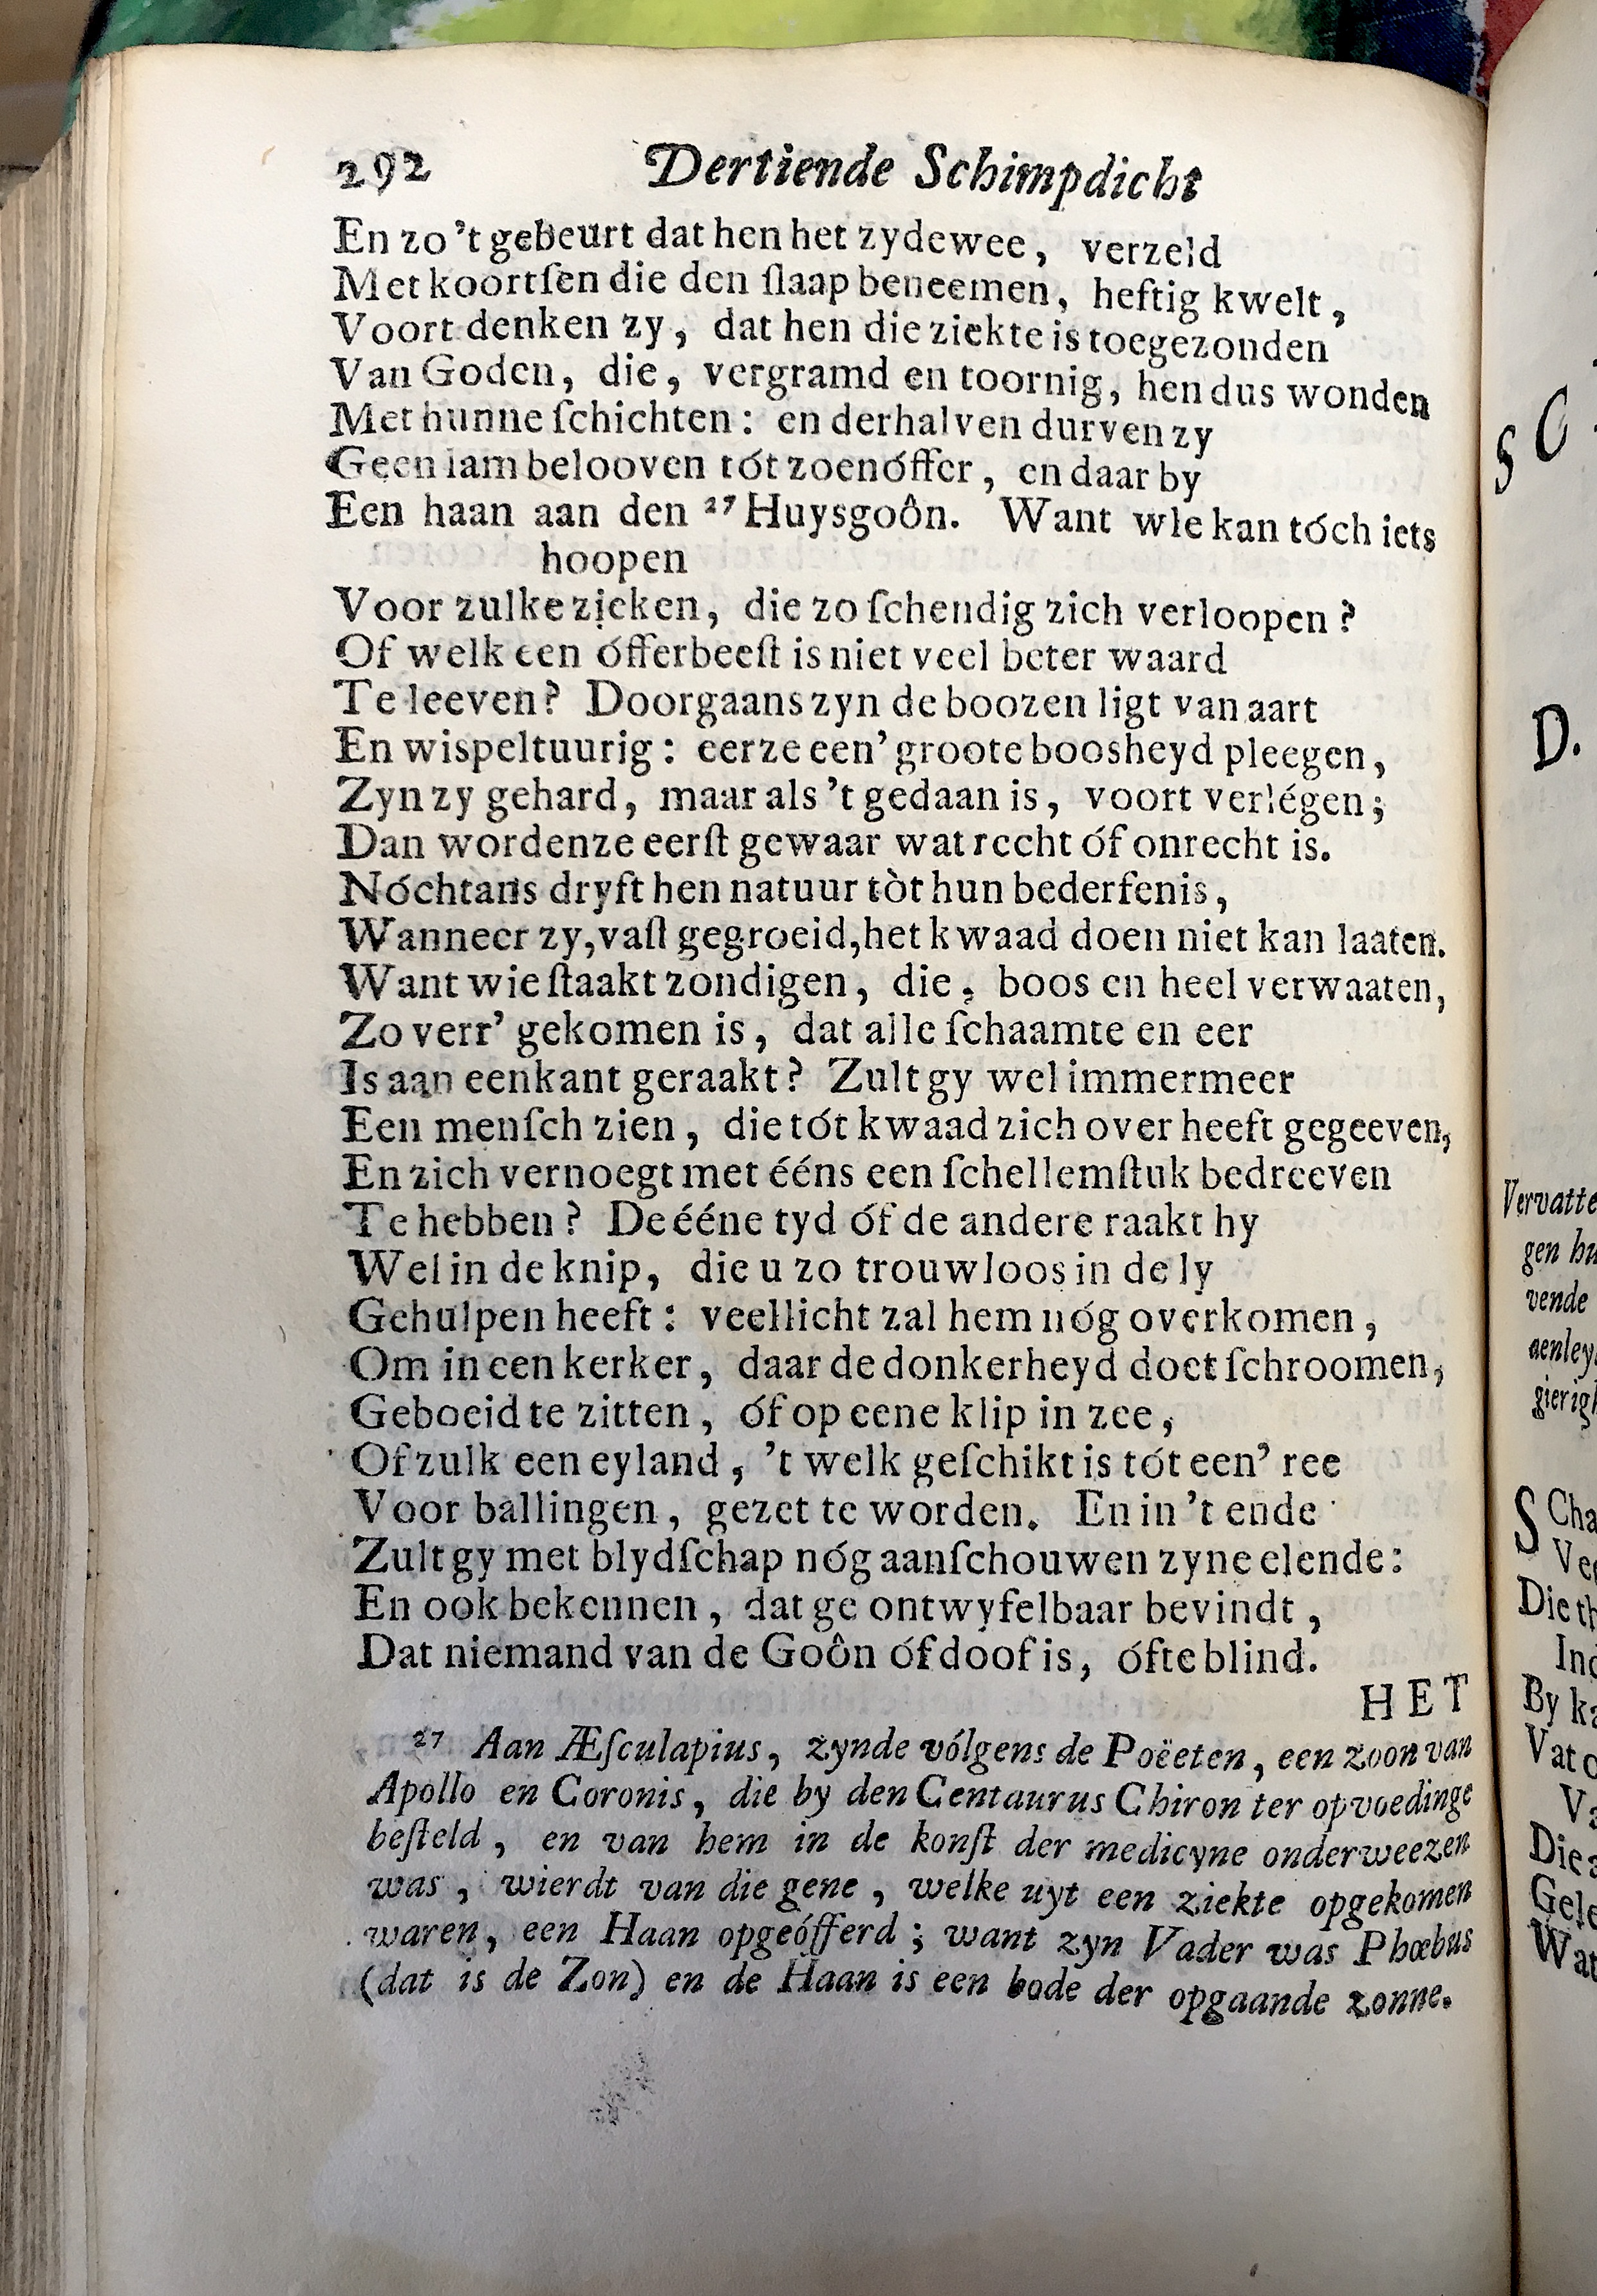 292 Dertiende Schimpdicht
En zo 't gebeurt dat hen het zydewee, verzeld
Met koortſen die den ſlaap beneemen, heftig kwelt,
Voort denken zy, dat hen die ziekte is toegezonden
Van Goden, die, vergramd en toornig, hen dus wonden
Met hunne ſchichten: en derhalven durven zy
Geen lam belooven tót zoenóffer, en daar by
Een haan aan den ²⁷ Huysgoôn. Want wie kan tóch iets
hoopen
Voor zulke zieken, die zo ſchendig zich verloopen?
Of welk een ófferbeeſt is niet veel beter waard
Te leeven? Doorgaans zyn de boozen ligt van aart
En wispeltuurig: eer ze een' groote boosheyd pleegen,
Zyn zy gehard, maar als 't gedaan is, voort verlégen;
Dan worden ze eerſt gewaar wat recht óf onrecht is.
Nóchtans dryft hen natuur tòt hun bederfenis,
Wanneer zy, vaſt gegroeid, het kwaad doen niet kan laaten.
Want wie ſtaakt zondigen, die, boos en heel verwaaten,
Zo verr' gekomen is, dat alle ſchaamte en eer
Is aan eenkant geraakt? Zult gy wel immermeer
Een menſch zien, die tót kwaad zich over heeft gegeeven,
En zich vernoegt met ééns een ſchellemſtuk bedreeven
Te hebben? De ééne tyd óf de andere raakt hy
Wel in de knip, die u zo trouwloos in de ly
Gehulpen heeft: veellicht zal hem nóg overkomen,
Om in een kerker, daar de donkerheyd doet ſchroomen,
Geboeid te zitten, óf op eene klip in zee,
Of zulk een eyland, 't welk geſchikt is tót een' ree
Voor ballingen, gezet te worden. En in 't ende
Zult gy met blydſchap nóg aanſchouwen zyne elende:
En ook bekennen, dat ge ontwyfelbaar bevindt,
Dat niemand van de Goôn óf doof is, ófte blind.
HET
²⁷ Aan Æſculapius, zynde vólgens de Poëeten, een zoon van
Apollo en Coronis, die by den Centaurus Chiron ter opvoedinge
beſteld, en van hem in de konſt der medicyne onderweezen
was, wierdt van die gene, welke uyt een ziekte opgekomen
waren, een Haan opgeófferd; want zyn Vader was Phœbus
(dat is de Zon) en de Haan is een bode der opgaande zonne.
SC
D.
Vervatte
gen hu
vende
aenley
gierigh
SCha
Vee
Die th
Ind
By ka
Vat o
Va
Die a
Gele
Wat